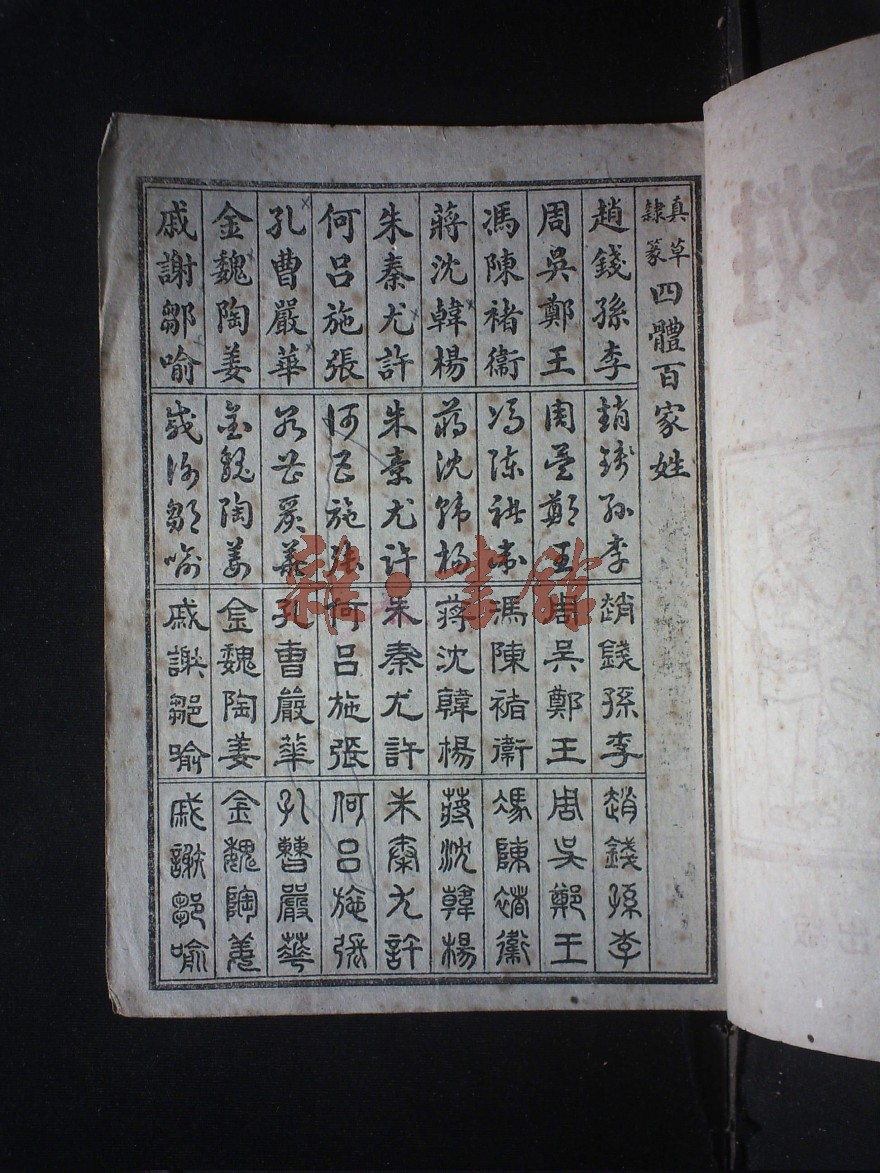 真草隸篆四體百家姓
趙錢孫李
周吳鄭王
馮陳褚衛
蔣沈韓楊
朱秦尤許
何呂施張
孔曹嚴華
金魏陶姜
戚謝鄒喻
趙錢孫李
周吳鄭王
馮陳褚衛
蔣沈韓楊
朱秦尤許
何呂施張
孔曹嚴華
金魏陶姜
戚謝鄒喻
趙錢孫李
周吳鄭王
馮陳褚衛
蔣沈韓楊
朱秦尤許
何呂施張
孔曹嚴華
金魏陶姜
戚謝鄒喻
趙錢孫李
周吳鄭王
馮陳褚衛
蔣沈韓楊
朱秦尤許
何呂施張
孔曹嚴華
金魏陶姜
戚謝鄒喻
雜·書館